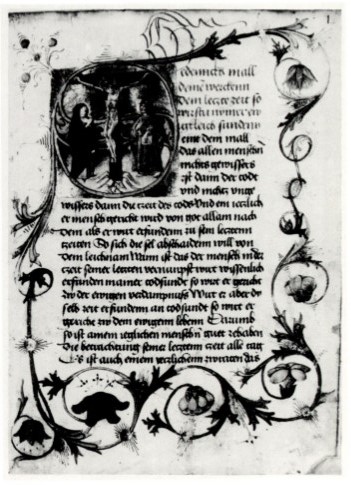 1
edennck mall
deine werckenn
dein leczte zeit so
wirstu nymer ew
icleich sunden
eint dem mall
das allen menschn
nichts gewissers
ist dann der todt
vnd nichcz vnge
wissers dann die zeit des tods Vnd ein iczlich
er mensch gericht wird von got allain nach
dem als er wirt erfunden zu sein leczten
zeiten So sich die sel abschaiden will von
dem leichnam Wann ist das der mensch in der
czeit seiner leczten vernunfft wirt wissenlich
erfunden in ainer todsundt so wirt er gericht
zw der ewigen verdampnuß Wirt er aber die
selb zeit erfunden an todsundt so wirt er
gericht zw dem ewigenn lebenn Darumb
so ist ainem iczlichen menschn guet zehaben
die betrachtung seiner leczten zeit alle tag
Es ist auch einem iczlichenn zwraten das